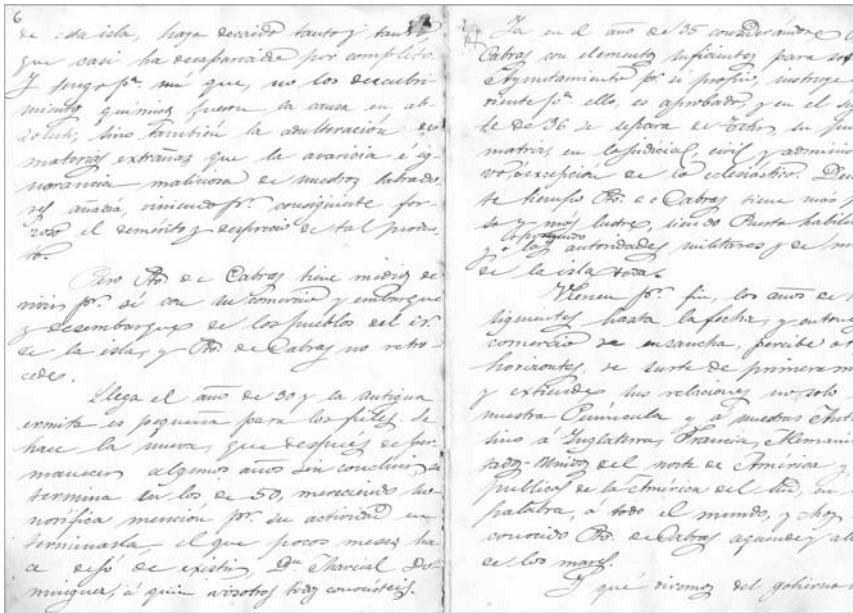 6
de esta isla, haya decaido tanto y tanto,
que casi ha desaparecido por completo.
Y tengo pª. mí que, no los descubri
mientos químicos fueron la causa en ab-
soluto, sino tambien la adulteración de
materias extrañas que la avaricia é ig-
norancia maliciosa de nuestros labrado-
res añadia, viniendo pr. consiguiente for-
zoso el demérito y desprecio de tal produc-
to.
Pero Pto. de Cabras tiene medios de
vivir pr. sí con su comercio y embarque
y desembarque de los pueblos del
de la isla, y Pto. de Cabras no retro-
cede.
Llega el año de 30 y la antigua
ermita es pequeña para los fieles, se
hace la nueva, que despues de per-
manecer algunos años sin concluir, se
termina en los de 50, mereciendo ho-
norífica mención pr. su actividad en
terminarla, el que pocos meses ha-
ce dejó de existir, Dn. Marcial Do-
minguez, á quien vosotros todos conocisteis.
Ya en el año de 35 considerándose
Cabras con elementos suficientes para ser
Ayuntamiento pr. sí propio, instruye
diente pª. ello, es aprobado, y en el
te de 36 se separa de su
matriz, en lo judicial, civil y administ
vo, á excepción de lo eclesiástico. Des
te tiempo Pto. de Cabras tiene más
so y más lustre, siendo Puerto habili
y las autoridades militares y de
de la isla toda.
Vienen pr. fin, los años de
siguientes hasta la fecha, y
comercio se ensancha, percibe
horizontes, se surte de primera
y extiende sus relaciones no solo
nuestra Península y á nuestras Ant
sino á Inglaterra, Francia, Alemani
tados-Unidos del norte de América y
publicas de la América del Sud, en
palabra, a todo el mundo, y hoy
conocido Pto. de Cabras aquende y al
de los mares.
Y qué diremos del gobierno